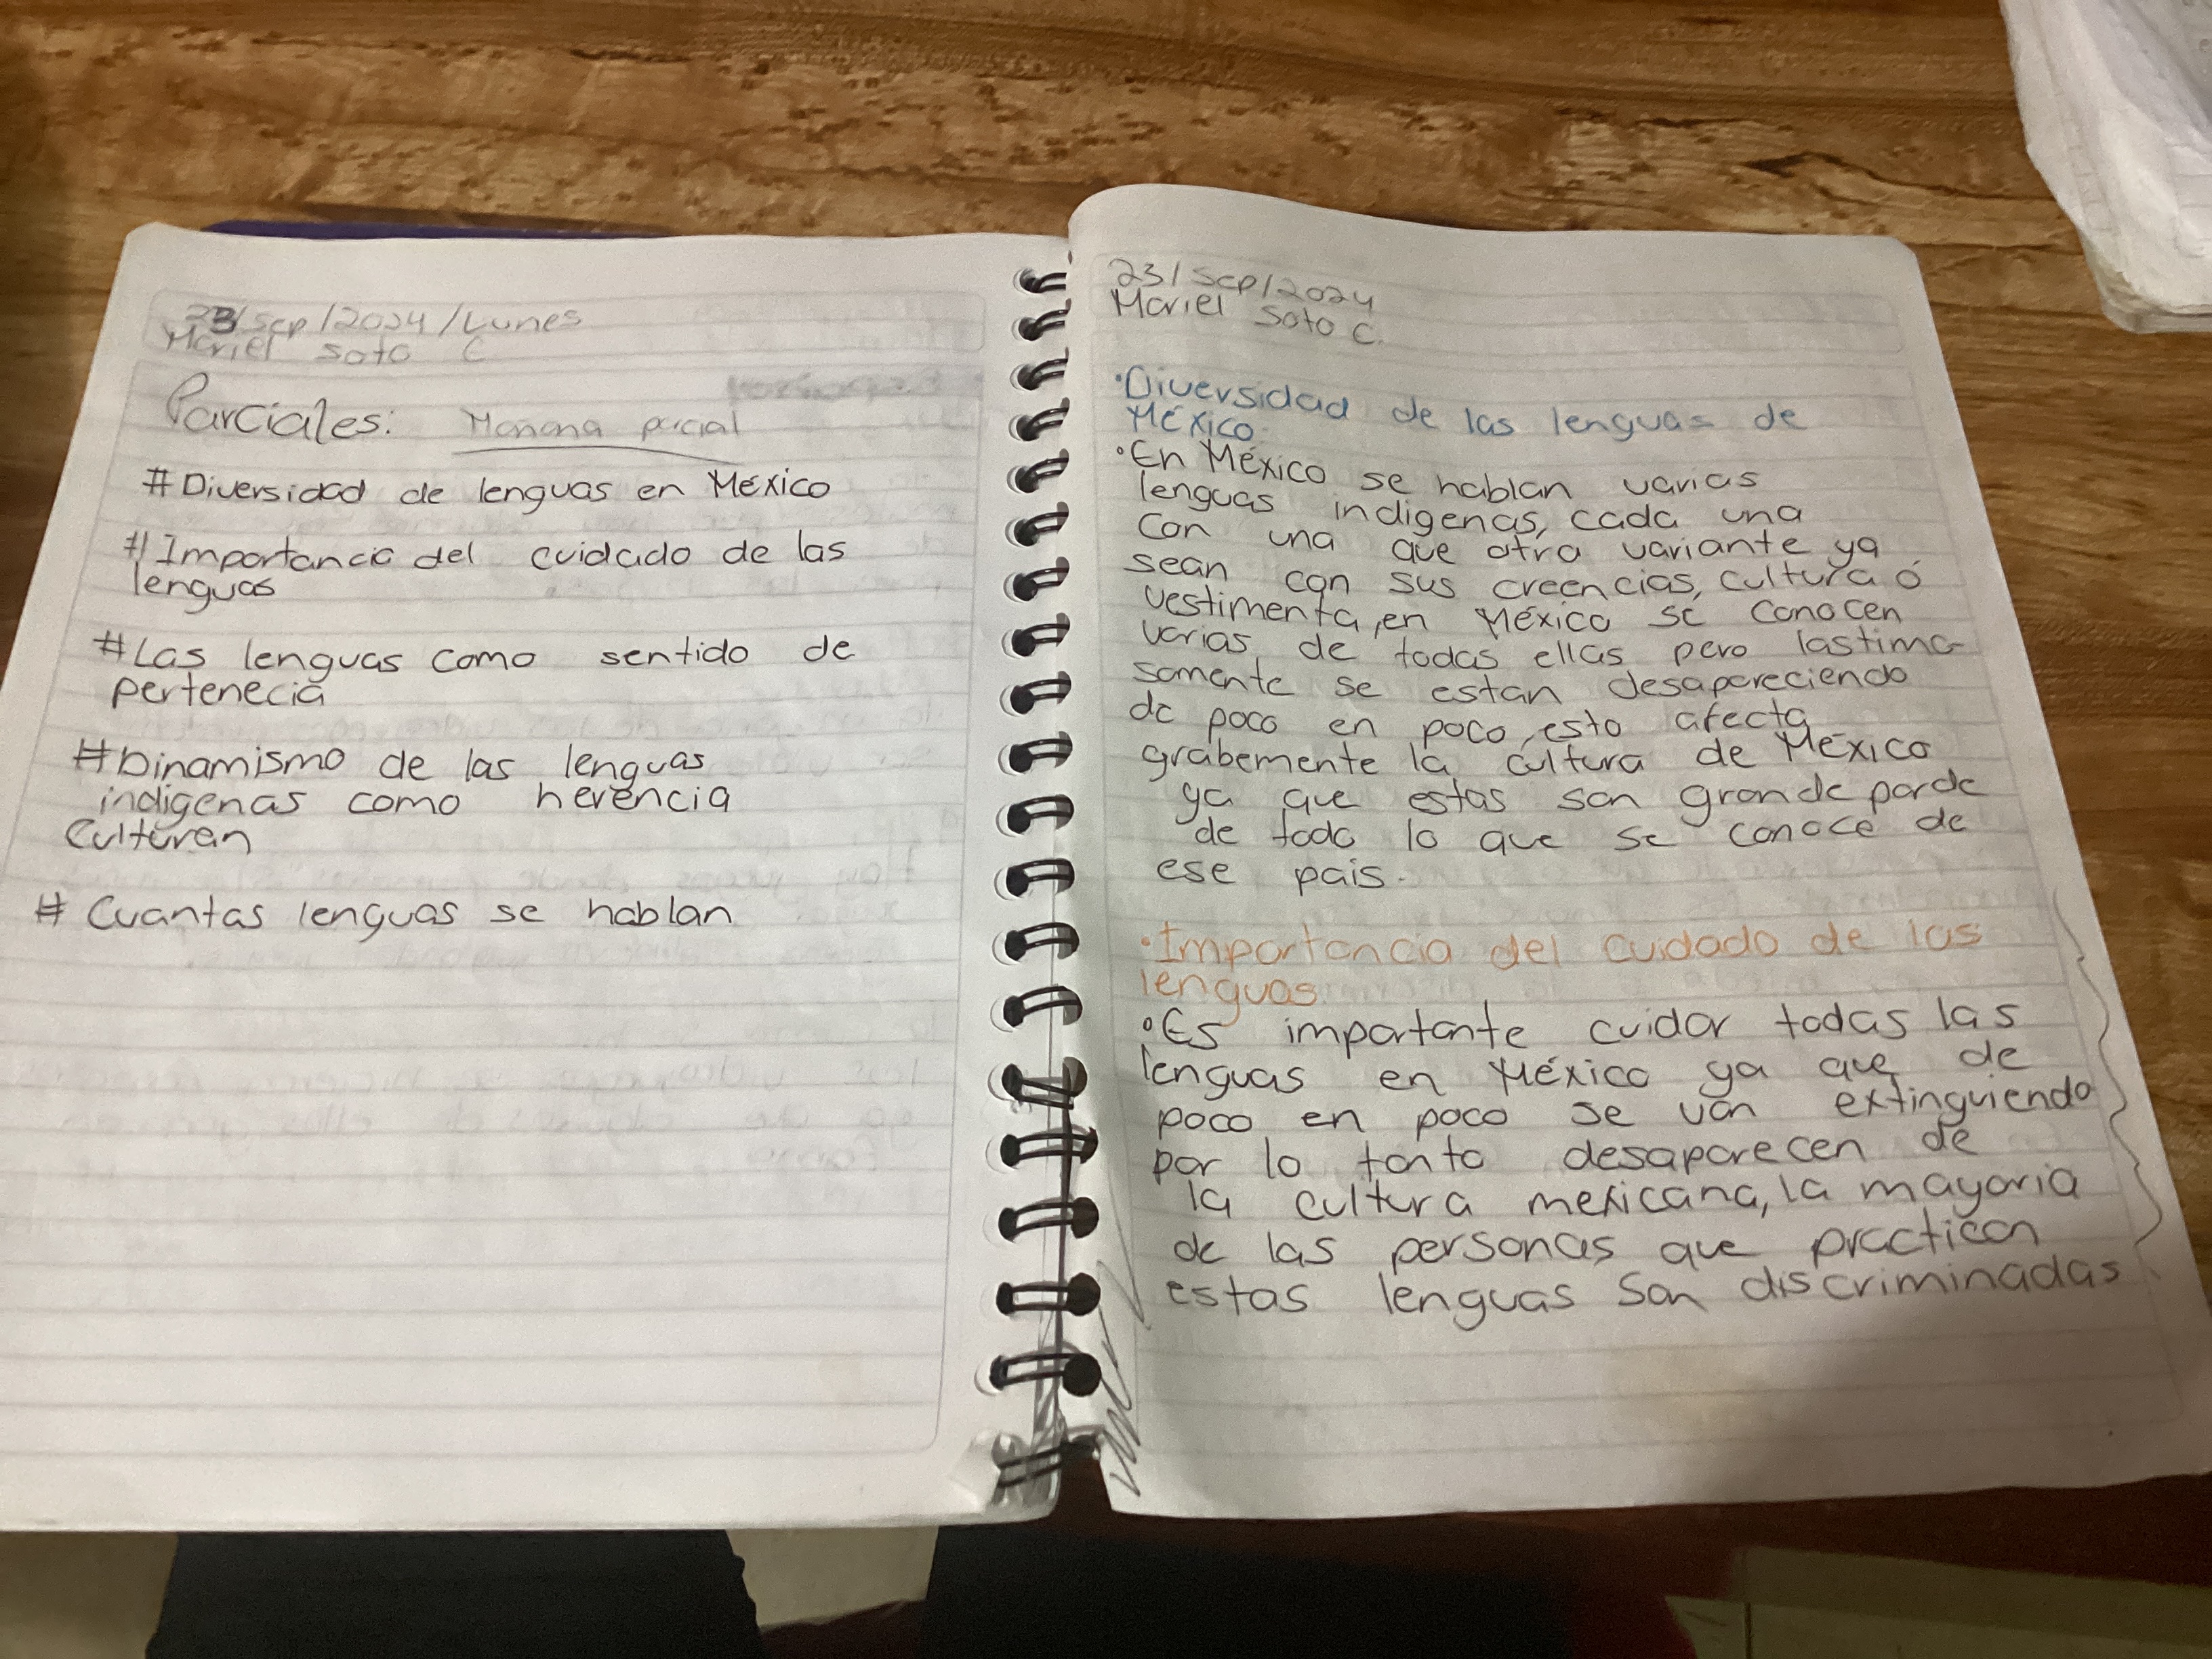 23/Sep/2024/Lunes
Mariel Soto C
Parciales: Manana parcial
#Diversidad de lenguas en México
#Importancia del cuidado de las
lenguas
#Las lenguas como sentido de
pertenecia
#Dinamismo de las lenguas
indigenas como herencia
Culturan
# Cuantas lenguas se hablan
23/Sep/2024
Mariel Soto C.
•Diversidad de las lenguas de
México.
•En México se hablan varias
lenguas indigenas, cada una
con una que otra variante ya
sean con sus creencias, cultura ó
vestimenta, en México se conocen
varias de todas ellas pero lastima-
somente se estan desapareciendo
de poco en poco, esto afecta
grabemente la cultura de México
ya que estas son grande parde
de todo lo que se conoce de
ese pais.
•Importancia del cuidado de las
lenguas
•Es importante cuidar todas las
lenguas en México ya que de
poco en poco se van extinguiendo
por lo tanto desaparecen de
la cultura mexicana, la mayoria
de las personas que practican
estas lenguas son discriminadas